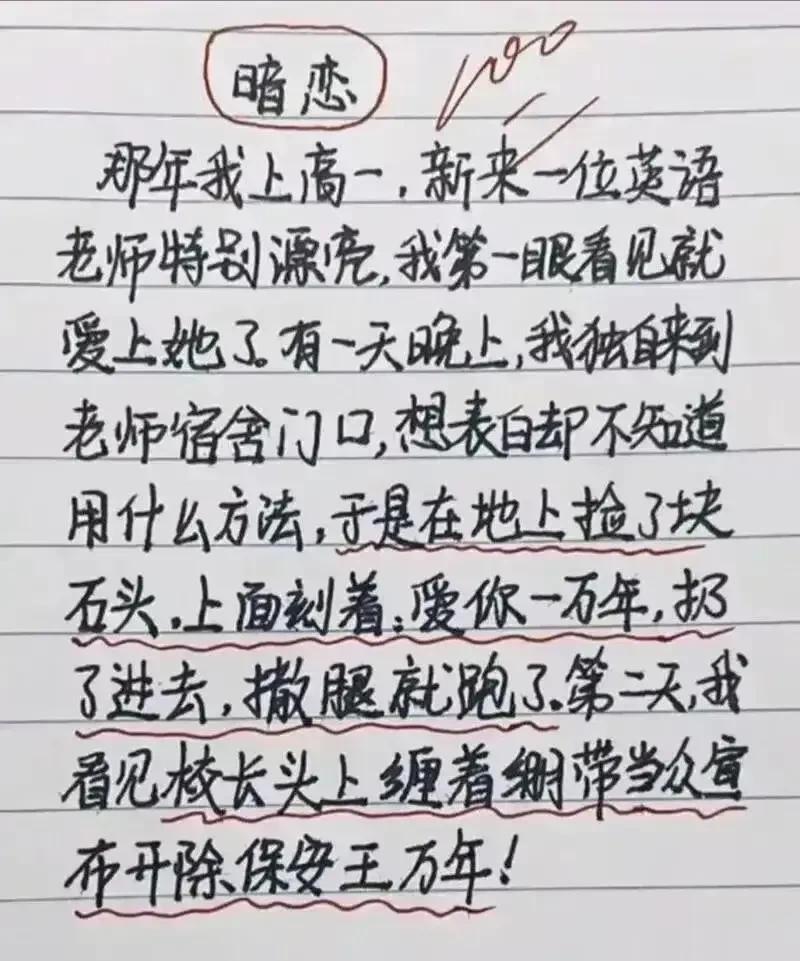 暗恋 100
那年我上高一，新来一位英语
老师特别漂亮，我第一眼看见就
爱上她了。有一天晚上，我独自来到
老师宿舍门口，想表白却不知道
用什么方法，于是在地上捡了块
石头，上面刻着：爱你一万年，扔
了进去，撒腿就跑了。第二天，我
看见校长头上缠着绷带当众宣
布开除保安王万年！